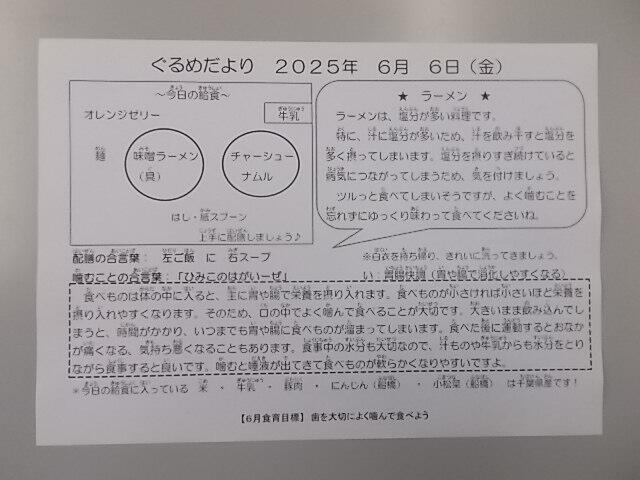 ぐるめだより 2025年 6月 6日（金）
～今日の給食～
オレンジゼリー
牛乳
麺
味噌ラーメン
（具）
チャーシュー
ナムル
はし・紙スプーン
上手に配膳しましょう♪
★ ラーメン ★
ラーメンは、塩分が多い料理です。
特に、汁に塩分が多いため、汁を飲み干すと塩分を
多く摂ってしまいます。塩分を摂りすぎ続けていると
病気につながってしまうため、気を付けましょう。
ツルっと食べてしまいそうですが、よく噛むことを
忘れずにゆっくり味わって食べてくださいね。
配膳の合言葉： 左ご飯 に 右スープ
※白衣を持ち帰り、きれいに洗ってきましょう。
噛むことの合言葉：「ひみこのはがいーぜ」
い：胃腸快調（胃や腸で消化しやすくなる）
食べものは体の中に入ると、主に胃や腸で栄養を摂り入れます。食べものが小さければ小さいほど栄養を
摂り入れやすくなります。そのため、口の中でよく噛んで食べることが大切です。大きいまま飲み込んでし
まうと、時間がかかり、いつまでも胃や腸に食べものが溜まってしまいます。食べた後に運動するとおなか
が痛くなる、気持ち悪くなることもあります。食事中の水分も大切なので、汁ものや牛乳からも水分をとり
ながら食事すると良いです。噛むと唾液が出てきて食べものが軟らかくなりやすいですよ。
＊今日の給食に入っている 米 ・ 牛乳 ・ 豚肉 ・ にんじん（船橋） ・ 小松菜（船橋） は千葉県産です！
【6月食育目標】 歯を大切によく噛んで食べよう